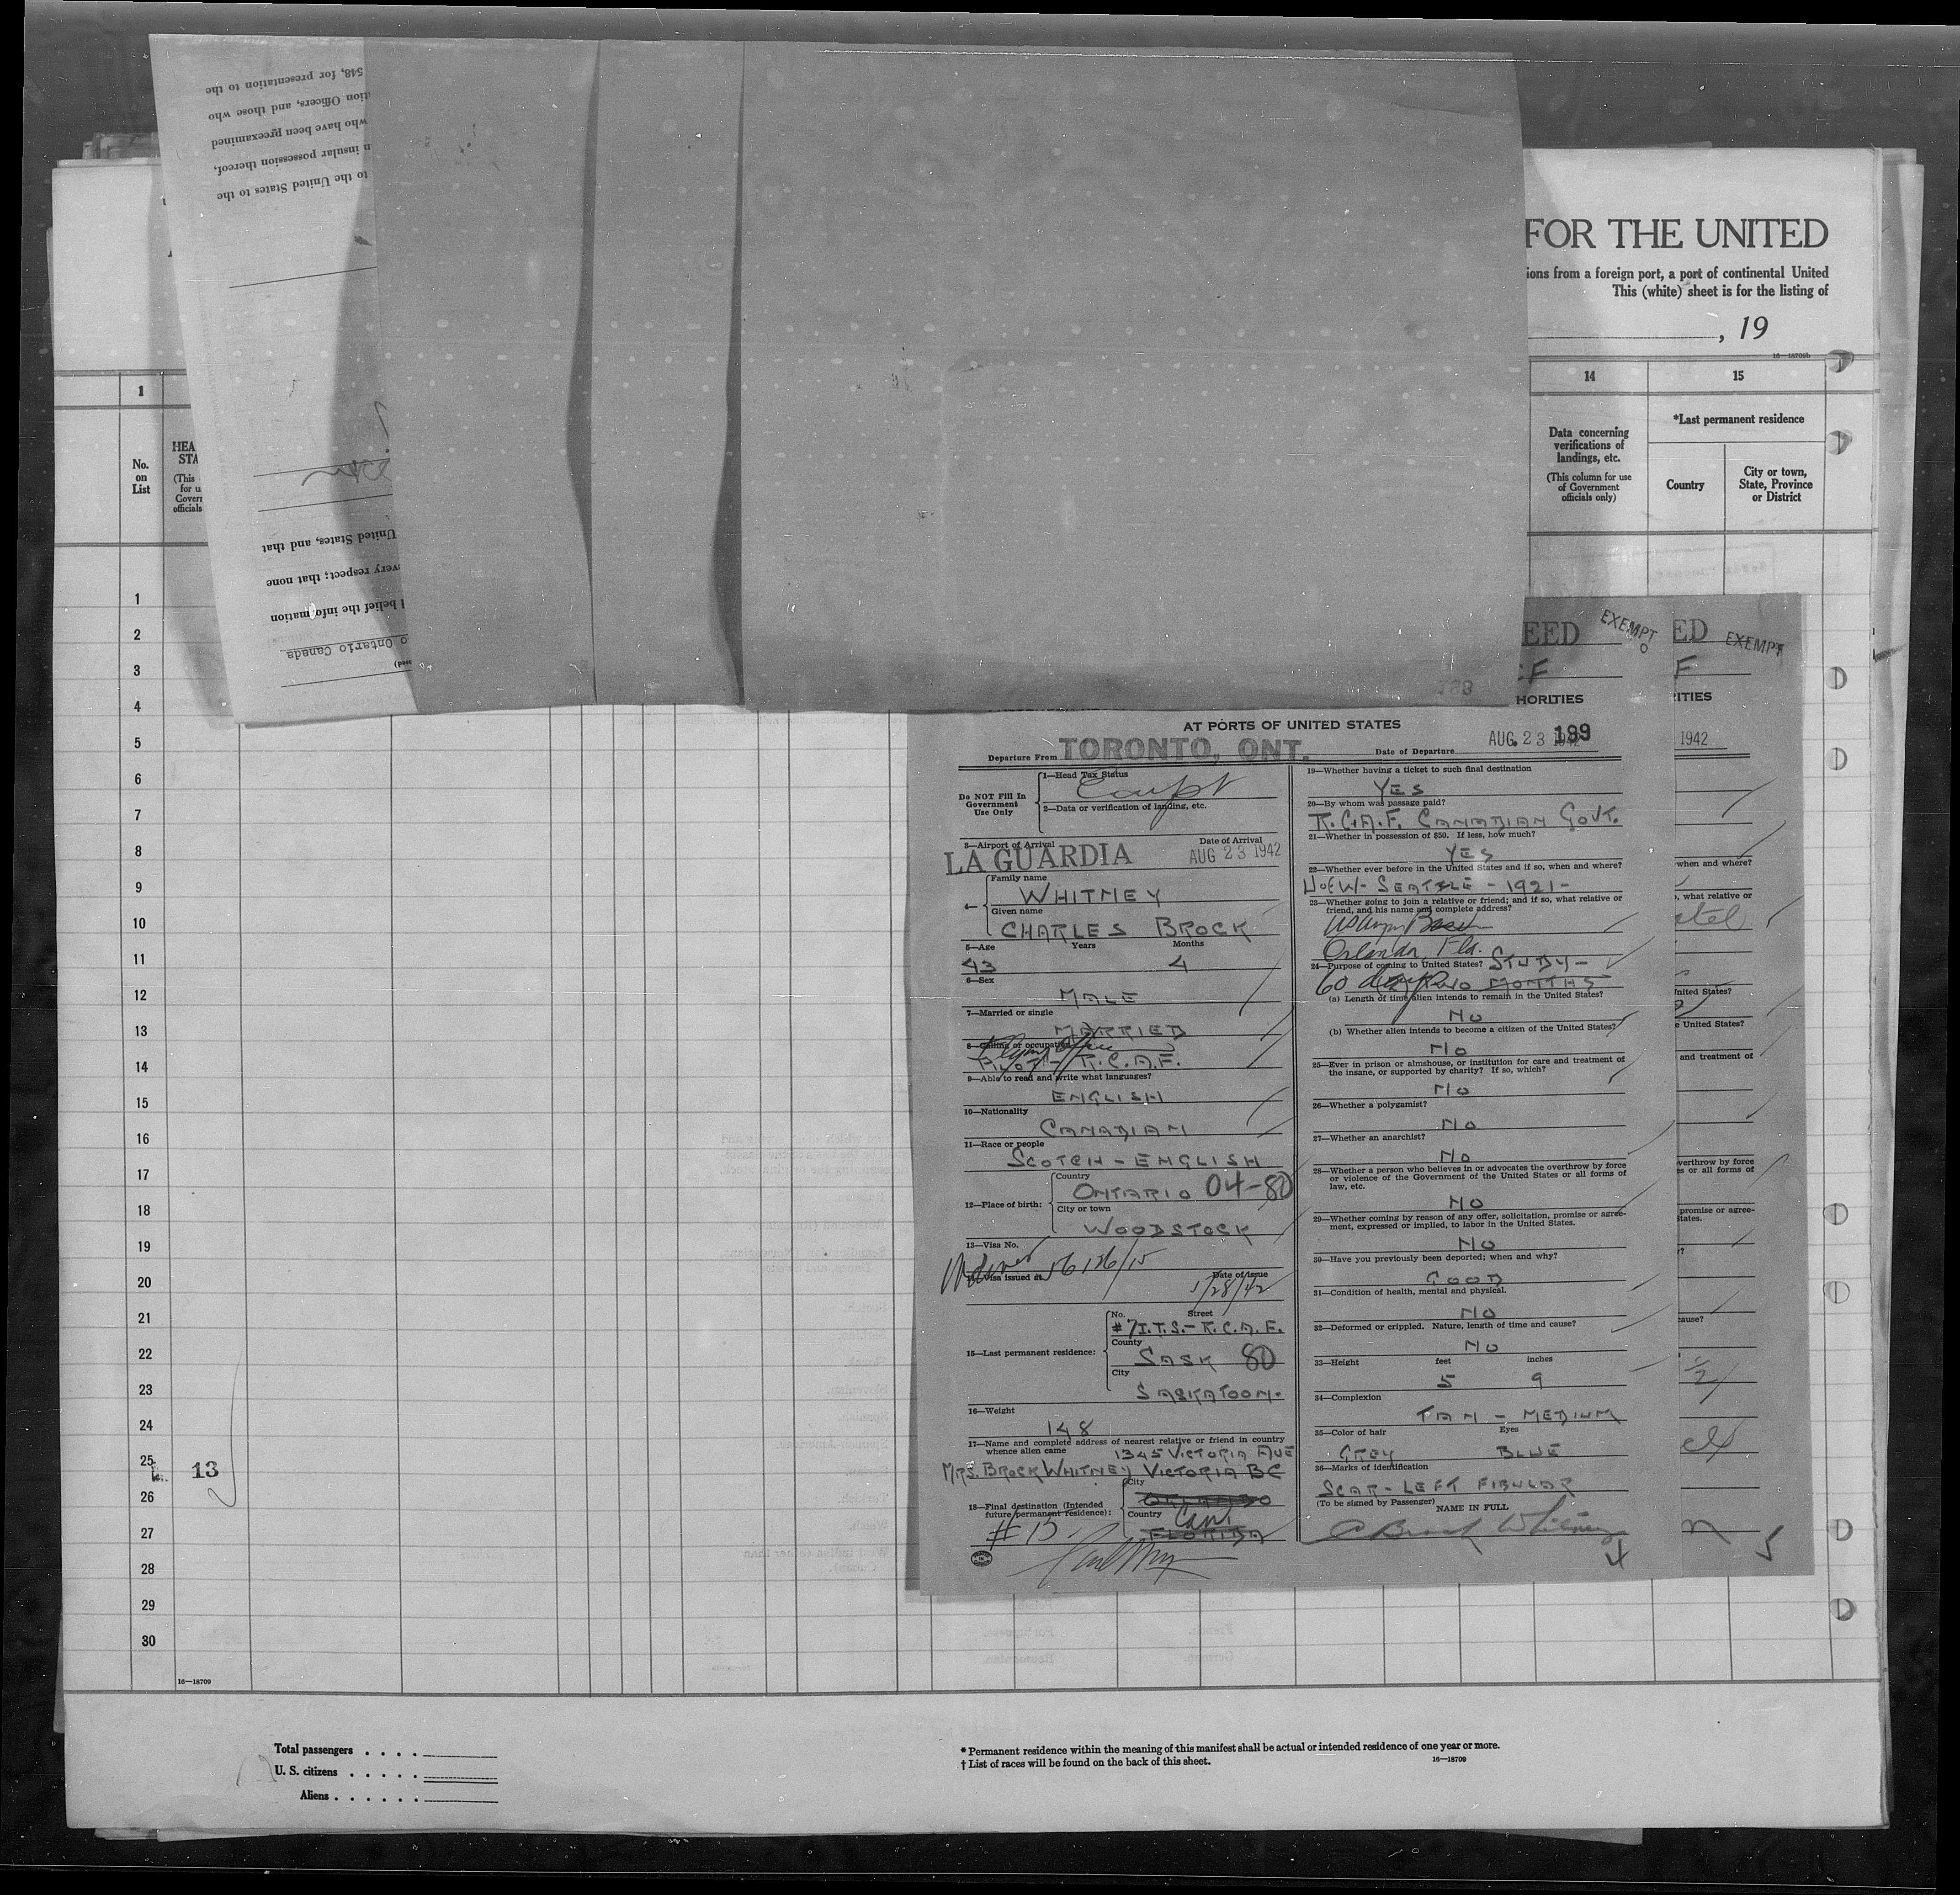 548, for presentation to the
tion Officers, and those who
who have been preexamined
n insular possession thereof,
to the United States to the
United States, and that
very respect; that none
d belief the information
o Ontario Canada
FOR THE UNITED
ions from a foreign port, a port of continental United
This (white) sheet is for the listing of
, 19
16—18709b
1 14 15
No. on List
HEA
STA
(This
for u
Govern
officials
Data concerning verifications of landings, etc.
(This column for use of Government officials only)
*Last permanent residence
Country
City or town, State, Province or District
1
2
3
4
5
6
7
8
9
10
11
12
13
14
15
16
17
18
19
20
21
22
23
24
25 13
26
27
28
29
30
16—18709
EED EXEMPT
ED EXEMPT
HORITIES
ITIES
AT PORTS OF UNITED STATES
Departure From TORONTO, ONT.
Date of Departure AUG. 23 1942 199
1942
Do NOT Fill In
Government
Use Only
1—Head Tax Status
2—Data or verification of landing, etc.
3—Airport of Arrival Date of Arrival
LA GUARDIA AUG 23 1942
4— Family name
WHITNEY
Given name
CHARLES BROCK
5—Age Years Months
43 4
6—Sex
MALE
7—Married or single
MARRIED
8—Calling or occupation
PILOT - R.C.A.F.
9—Able to read and write what languages?
ENGLISH
10—Nationality
CANADIAN
11—Race or people
SCOTCH - ENGLISH
12—Place of birth:
Country
ONTARIO 04-80
City or town
WOODSTOCK
13—Visa No.
14—Visa issued at
Date of issue
1/28/42
15—Last permanent residence:
No. Street
#7 I.T.S. - R.C.A.F.
County
SASK 80
City
SASKATOON.
16—Weight
148
17—Name and complete address of nearest relative or friend in country
whence alien came
1345 VICTORIA AVE
MRS. BROCK WHITNEY VICTORIA BC
18—Final destination (Intended
future permanent residence):
City
ORLANDO
Country Can.
FLORIDA
#15.
19—Whether having a ticket to such final destination
YES
20—By whom was passage paid?
R.C.A.F. CANADIAN GOVT.
21—Whether in possession of $50. If less, how much?
YES
22—Whether ever before in the United States and if so, when and where?
U of W - SEATTLE - 1921 -
23—Whether going to join a relative or friend; and if so, what relative or
friend, and his name and complete address?
US Army Base
Orlando, Fla.
24—Purpose of coming to United States? STUDY -
60 days TWO MONTHS
(a) Length of time alien intends to remain in the United States?
NO
(b) Whether alien intends to become a citizen of the United States?
NO
25—Ever in prison or almshouse, or institution for care and treatment of
the insane, or supported by charity? If so, which?
NO
26—Whether a polygamist?
NO
27—Whether an anarchist?
NO
28—Whether a person who believes in or advocates the overthrow by force
or violence of the Government of the United States or all forms of
law, etc.
NO
29—Whether coming by reason of any offer, solicitation, promise or agree-
ment, expressed or implied, to labor in the United States.
NO
30—Have you previously been deported; when and why?
GOOD
31—Condition of health, mental and physical.
NO
32—Deformed or crippled. Nature, length of time and cause?
NO
33—Height feet inches
5 9
34—Complexion
TAN - MEDIUM
35—Color of hair Eyes
GREY BLUE
36—Marks of identification
SCAR - LEFT FIBULAR
(To be signed by Passenger) NAME IN FULL
C Brock Whitney
4
when and where?
, what relative or
nited States?
e United States?
and treatment of
verthrow by force
es or all forms of
promise or agree-
tates.
?
ause?
1/2
5
Total passengers . . . .
U. S. citizens . . . . .
Aliens . . . . . .
* Permanent residence within the meaning of this manifest shall be actual or intended residence of one year or more.
† List of races will be found on the back of this sheet. 16—18709